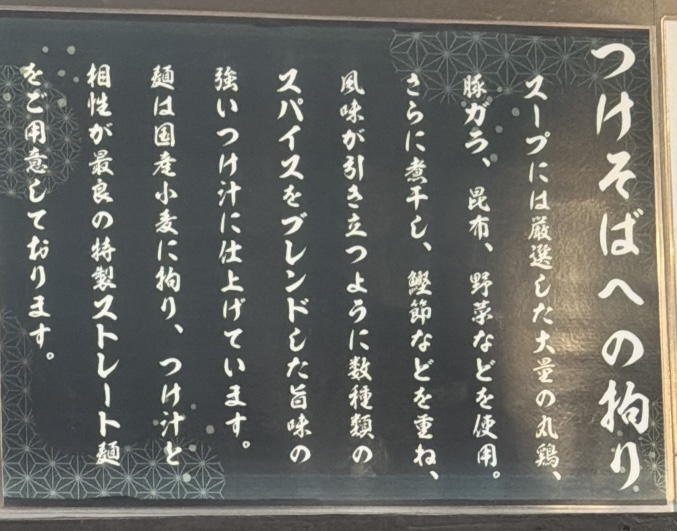 つけそばへの拘り
スープには厳選した大量の丸鶏、
豚ガラ、昆布、野菜などを使用。
さらに煮干し、鰹節などを重ね、
風味が引き立つように数種類の
スパイスをブレンドした旨味の
強いつけ汁に仕上げています。
麺は国産小麦に拘り、つけ汁と
相性が最良の特製ストレート麺
をご用意しております。